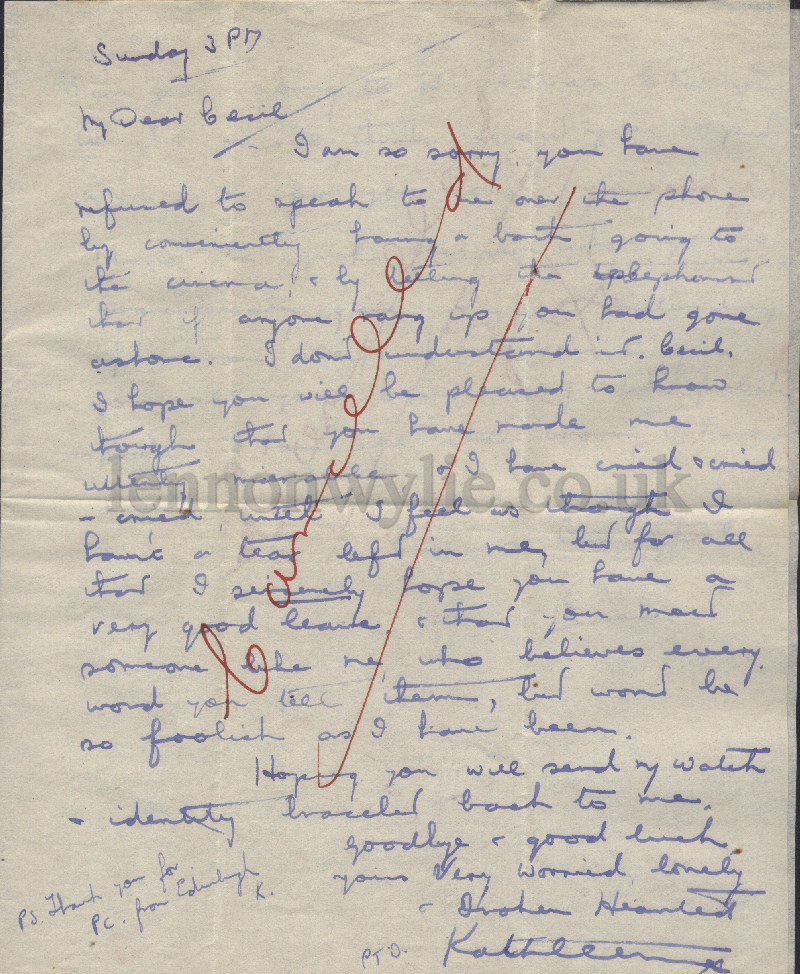 Sunday 3 PM
My Dear Cecil
I am so sorry you have
refused to speak to me over the phone
by conveniently having a bath, going to
the cinema, & by telling the
that if anyone rang up you had gone
ashore. I don't understand it. Cecil.
I hope you will be pleased to know
though that you have made me
utterly miserable & I have cried & cried
- cried until I feel as though I
haven't a tear left in me, but for all
that I sincerely hope you have a
very good leave, & that you meet
someone like me, who believes every
word you tell them, but wont be
so foolish as I have been.
Hoping you will send my watch
& identity bracelet back to me.
goodbye & good luck
yours Very Worried, lonely
& Broken Hearted
Kathleen x
PS. Thank you for
PC. from Edinburgh
K.
PTO.
lennonwylie.co.uk